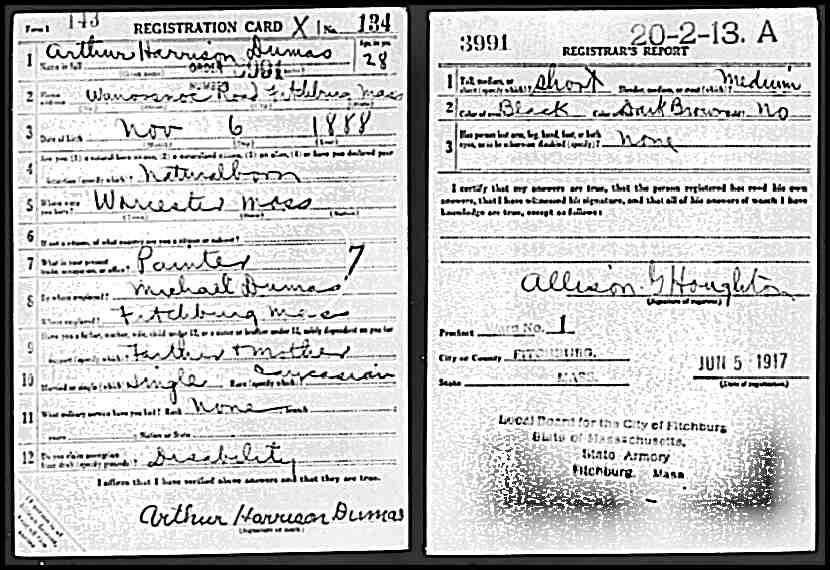 Form 1 143 REGISTRATION CARD X No. 134
1 Arthur Harrison Dumas Age, in yrs. 28
Name in full
(Given name) ORDER 3991
NUMBER
2 Home address Wanoosnoc Road Fitchburg Mass
3 Date of birth Nov 6 1888
(Month) (Day) (Year)
Are you (1) a natural-born citizen, (2) a naturalized citizen, (3) an alien, (4) or have you declared your
4 intention (specify which)? Natural born
5 Where were you born? Worcester Mass
(Town) (State) (Nation)
6 If not a citizen, of what country are you a citizen or subject?
7 What is your present trade, occupation, or office? Painter 7
8 By whom employed? Michael Dumas
Where employed? Fitchburg Mass
Have you a father, mother, wife, child under 12, or a sister or brother under 12, solely dependent on you for
9 support (specify which)? Father + Mother
10 Married or single (which)? Single Race (specify which)? Caucasian
11 What military service have you had? Rank None branch
years Nation or State
12 Do you claim exemption from draft (specify grounds)? Disability
I affirm that I have verified above answers and that they are true.
Arthur Harrison Dumas
(Signature or mark)
3991 20-2-13. A
REGISTRAR'S REPORT
1 Tall, medium, or short (specify which)? Short Slender, medium, or stout (which)? Medium
2 Color of eyes Black Color of hair Dark Brown Bald? No
3 Has person lost arm, leg, hand, foot, or both eyes, or is he otherwise disabled (specify)? None
I certify that my answers are true, that the person registered has read his own
answers, that I have witnessed his signature, and that all of his answers of which I have
knowledge are true, except as follows:
Allison G Houghton
(Signature of registrar)
Precinct Ward No. 1
City or County FITCHBURG.
State MASS.
JUN 5 - 1917
(Date of registration)
Local Board for the City of Fitchburg
State of Massachusetts,
State Armory
Fitchburg, Mass